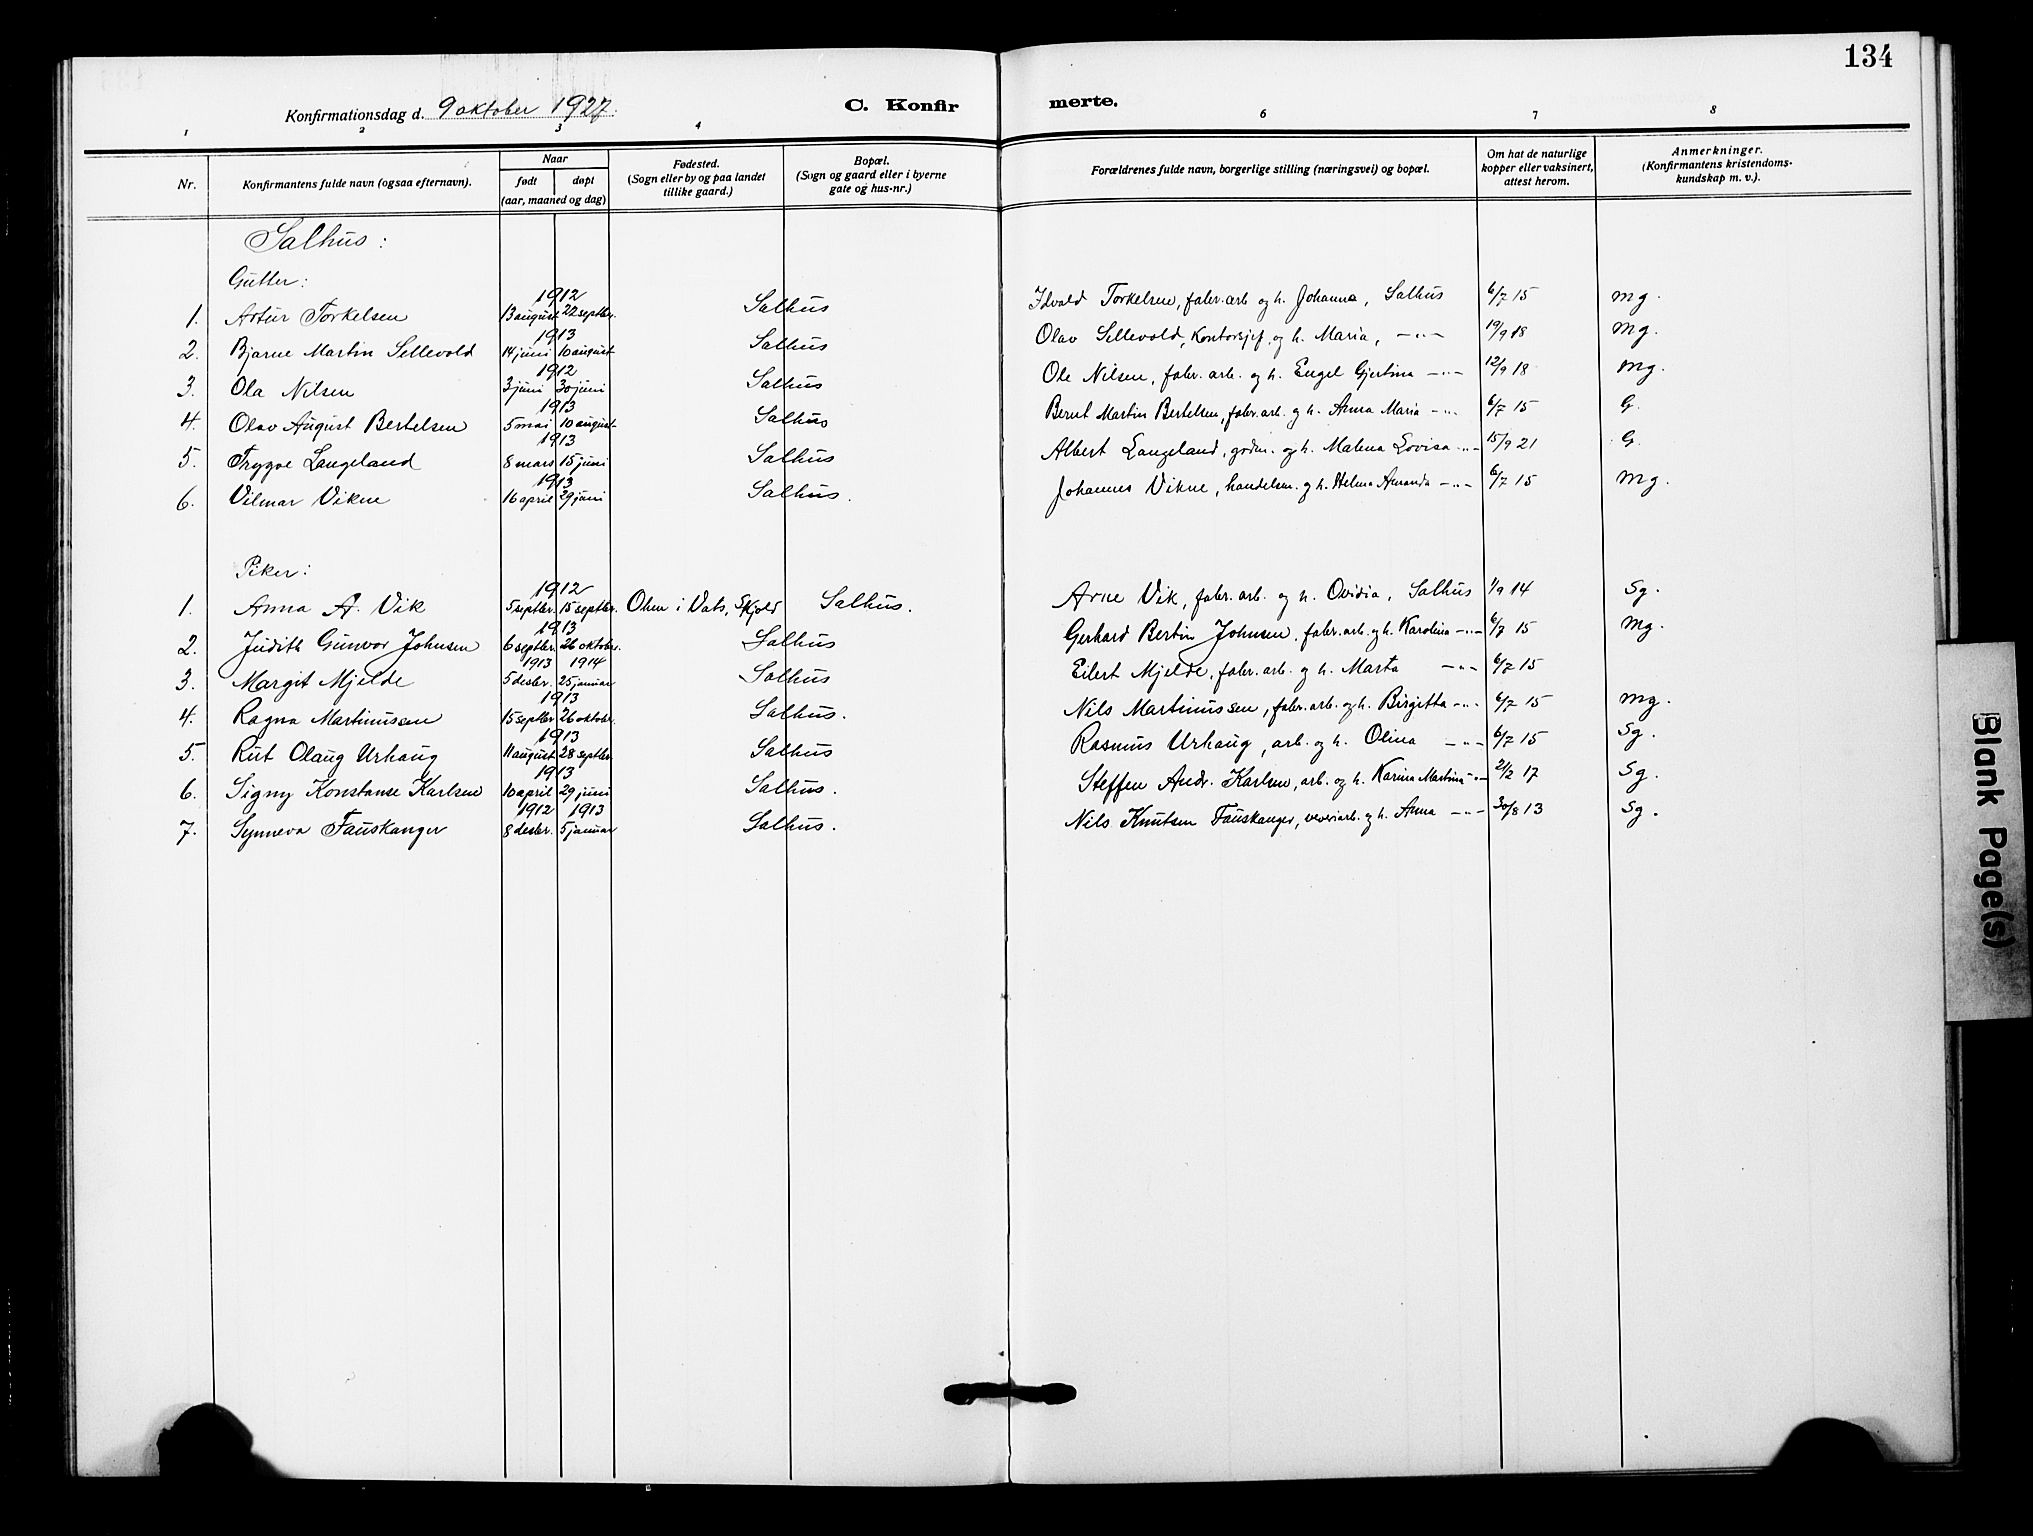 134
Konfirmationsdag d. 9 oktober 1927.
C. Konfirmerte.
1 2 3 4 6 7 8
Nr. Konfirmantens fulde navn (ogsaa efternavn). Naar født døpt (aar, maaned og dag) Fødested. (Sogn eller by og paa landet tillike gaard.) Bopæl. (Sogn og gaard eller i byerne gate og hus-nr.) Forældrenes fulde navn, borgerlige stilling (næringsvei) og bopæl. Om hat de naturlige kopper eller vaksinert, attest herom. Anmerkninger. (Konfirmantens kristendomskundskap m. v.).
Salhus:
Gutter:
1. Artur Torkelsen 1912 13 august 22 septbr. Salhus Torkelsen, fabr. arb. og h. Johanna, Salhus 6/7 15 Mg.
2. Bjarne Martin Sellevold 1913 14 juni 10 august Salhus Olav Sellevold, Kontorsjef. og h. Maria, —"— 19/9 18 Mg.
3. Ola Nilsen 1912 3 juni 30 juni Salhus Ole Nilsen, fabr. arb. og h. Engel Gjertina —"— 12/9 18 Mg.
4. Olav August Bertelsen 1913 5 mai 10 august Salhus Bernt Martin Bertelsen, fabr. arb. og h. Anna Maria —"— 6/7 15 G.
5. Trygve Langeland 1913 8 mars 15 juni Salhus Albert Langeland, og h. Malena Lovisa —"— 15/9 21 G.
6. Vilmar Vikne 1913 16 april 29 juni Salhus. Johannes Vikne, handelsm. og h. Helma Amanda —"— 6/7 15 Mg.
Piker:
1. Anna A. Vik 1912 5 septbr. 15 septbr. Ølen i Vats, Skjold Salhus. Arne Vik, fabr. arb. og h. Ovidia, Salhus 1/9 14 Sg.
2. Judith Gunvor Johnsen 1913 6 septbr. 26 oktober. Salhus Gerhard Bertin Johnsen, fabr. arb. og h. Karolina —"— 6/7 15 Mg.
3. Margit Mjelde 1913 1914 5 desbr. 25 januar Salhus Eilert Mjelde, fabr. arb. og h. Marta —"— 6/7 15
4. Ragna Martinussen 1913 15 septbr 26 oktobr. Salhus. Nils Martinussen, fabr. arb. og h. Birgitta —"— 6/7 15 Mg.
5. Rut Olaug Urhaug 1913 11 august 28 septbr. Salhus Rasmus Urhaug, arb. og h. Olina —"— 6/7 15 Sg.
6. Signy Konstanse Karlsen 1913 10 april 29 juni Salhus. Steffen Andr. Karlsen, arb. og h. Karina Martina —"— 21/2 17 Sg.
7. Synneva Fauskanger 1912 1913 8 desbr. 5 januar Salhus. Nils Knutsen Fauskanger, veveriarb. og h. Anna —"— 30/8 13 Sg.
Blank Page(s)